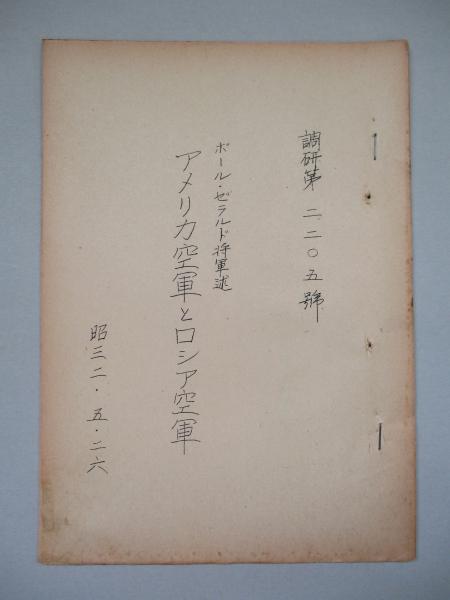 調研第二二〇五號
ポール・ゼラルド将軍述
アメリカ空軍とロシア空軍
昭三二・五・二六